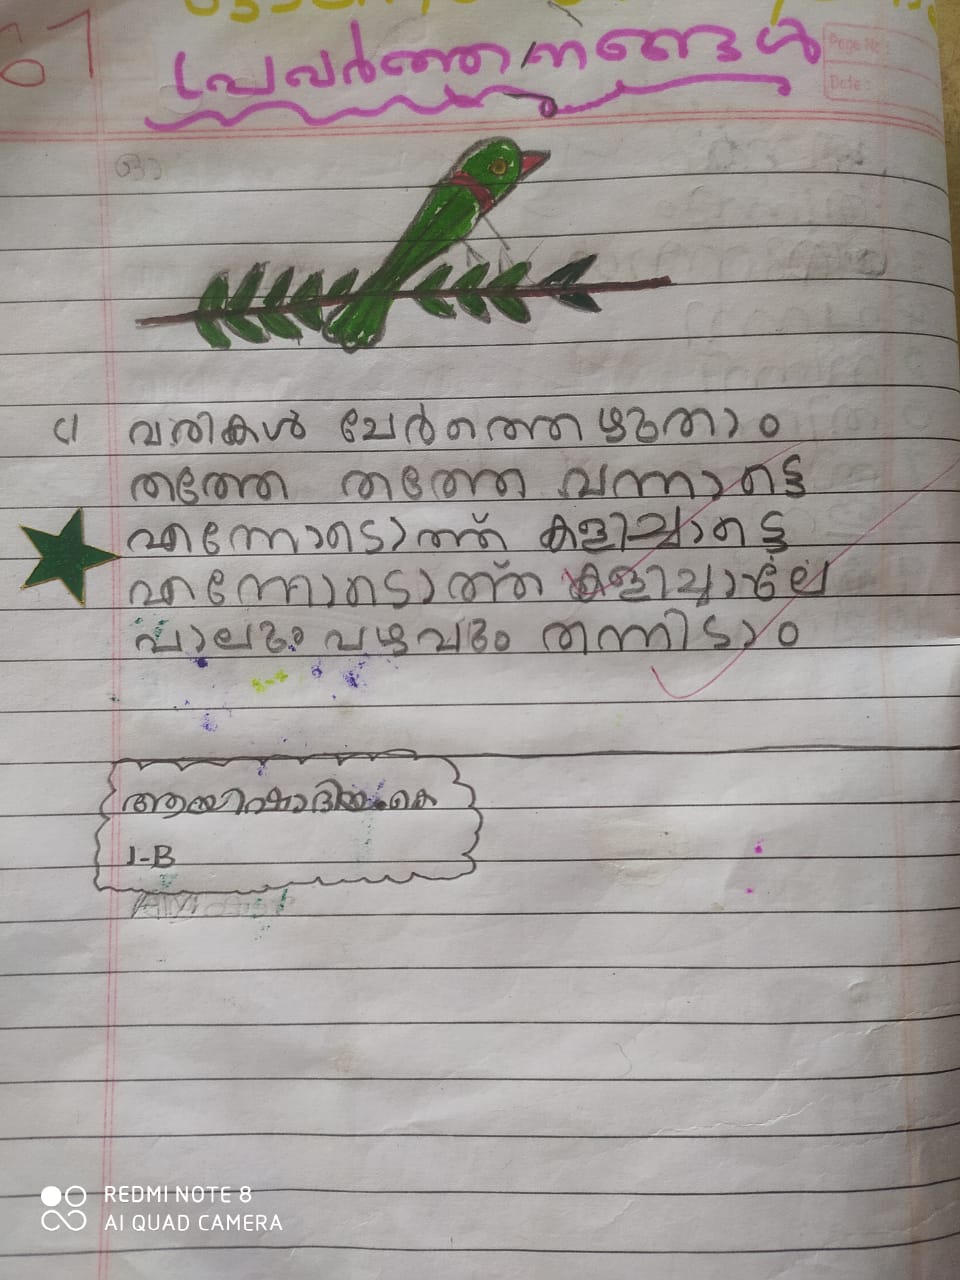 പ്രവർത്തനങ്ങൾ
Page No:
Date:
വരികൾ ചേർത്തെഴുതാം
തത്തേ തത്തേ വന്നാട്ടെ
എന്നോടൊത്ത് കളിച്ചാട്ടെ
എന്നോടൊത്ത് കളിച്ചാലോ
പാലും പഴവും തന്നിടാം
1-B
REDMI NOTE 8
AI QUAD CAMERA